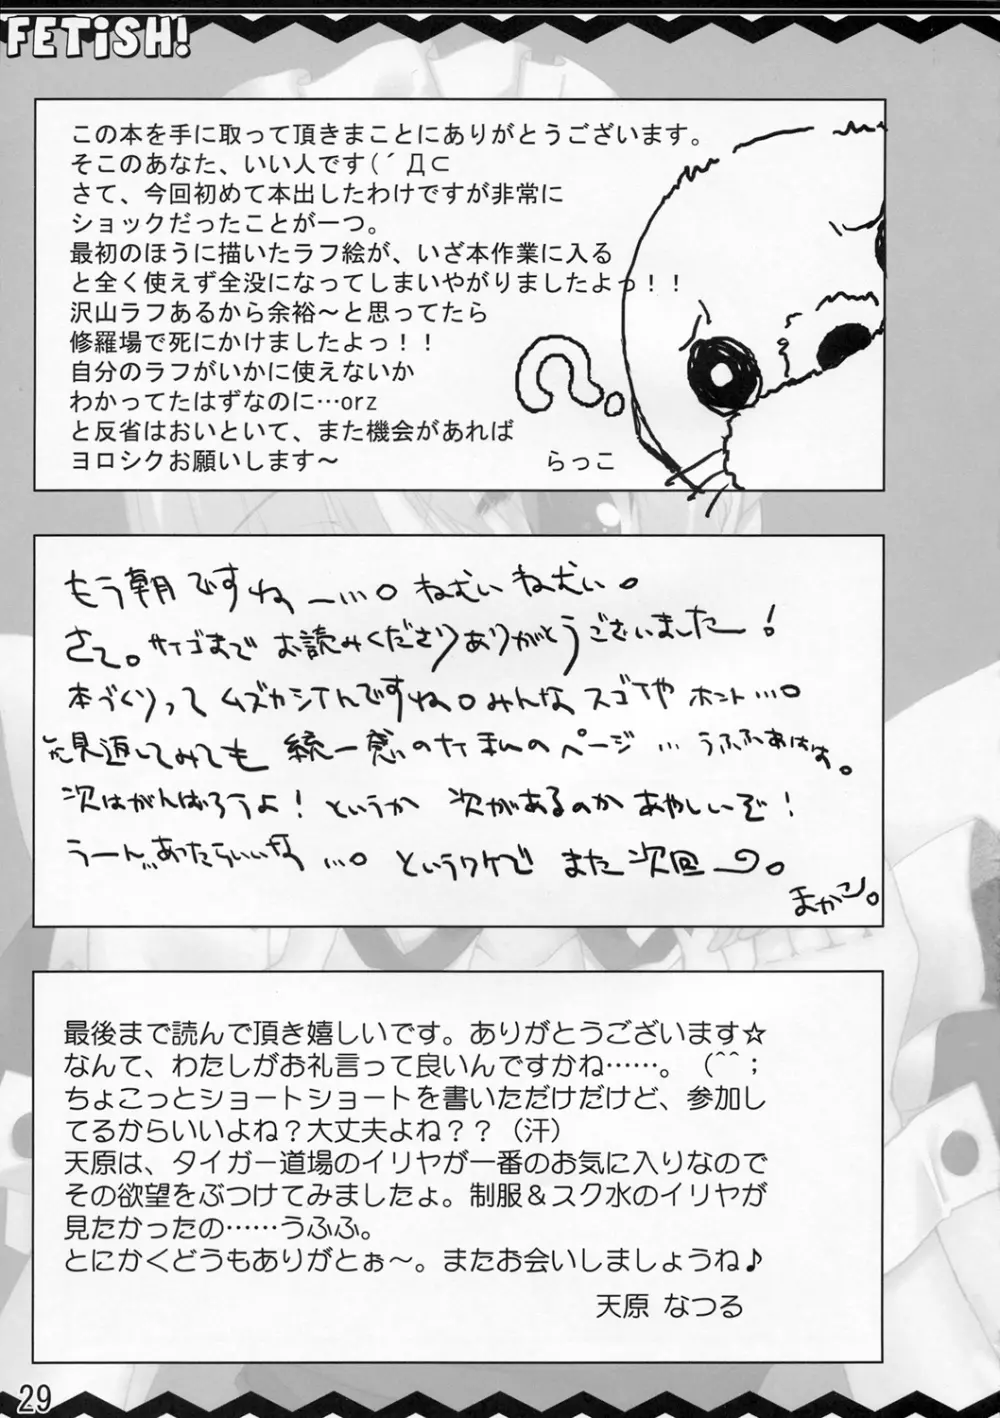 FETiSH!
この本を手に取って頂きまことにありがとうございます。
そこのあなた、いい人です(´Д⊂
さて、今回初めて本出したわけですが非常に
ショックだったことが一つ。
最初のほうに描いたラフ絵が、いざ本作業に入る
と全く使えず全没になってしまいやがりましたよっ！！
沢山ラフあるから余裕～と思ってたら
修羅場で死にかけましたよっ！！
自分のラフがいかに使えないか
わかってたはずなのに…orz
と反省はおいといて、また機会があれば
ヨロシクお願いします～
らっこ
もう朝ですねー…。ねむいねむい。
さて。サイゴまでお読みくださりありがとうございましたー！
本づくりってムズカシイんですね。みんなスゴイやホント…。
見返してみても統一感のナイまんのページ…うふふあはは。
次はがんばろうよ！というか次があるのかあやしいぞ！
うーん…あったらいいな…。というワケでまた次回。
まかこ。
最後まで読んで頂き嬉しいです。ありがとうございます☆
なんて、わたしがお礼言って良いんですかね……。（^^；
ちょこっとショートショートを書いただけだけど、参加し
てるからいいよね？大丈夫よね？？（汗）
天原は、タイガー道場のイリヤが一番のお気に入りなので
その欲望をぶつけてみましたょ。制服＆スク水のイリヤが
見たかったの……うふふ。
とにかくどうもありがとぉ～。またお会いしましょうね♪
天原 なつる
29